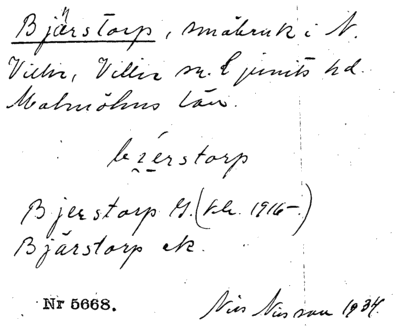 Bjärstorp, småbruk i N.
Villie, Villie sn. Ljunits hd.
Malmöhus län.
bzérstorp
Bjerstorp G. (kr. 1916-.)
Bjärstorp ek.
Nr 5668.
Nils Nilsson 1934.